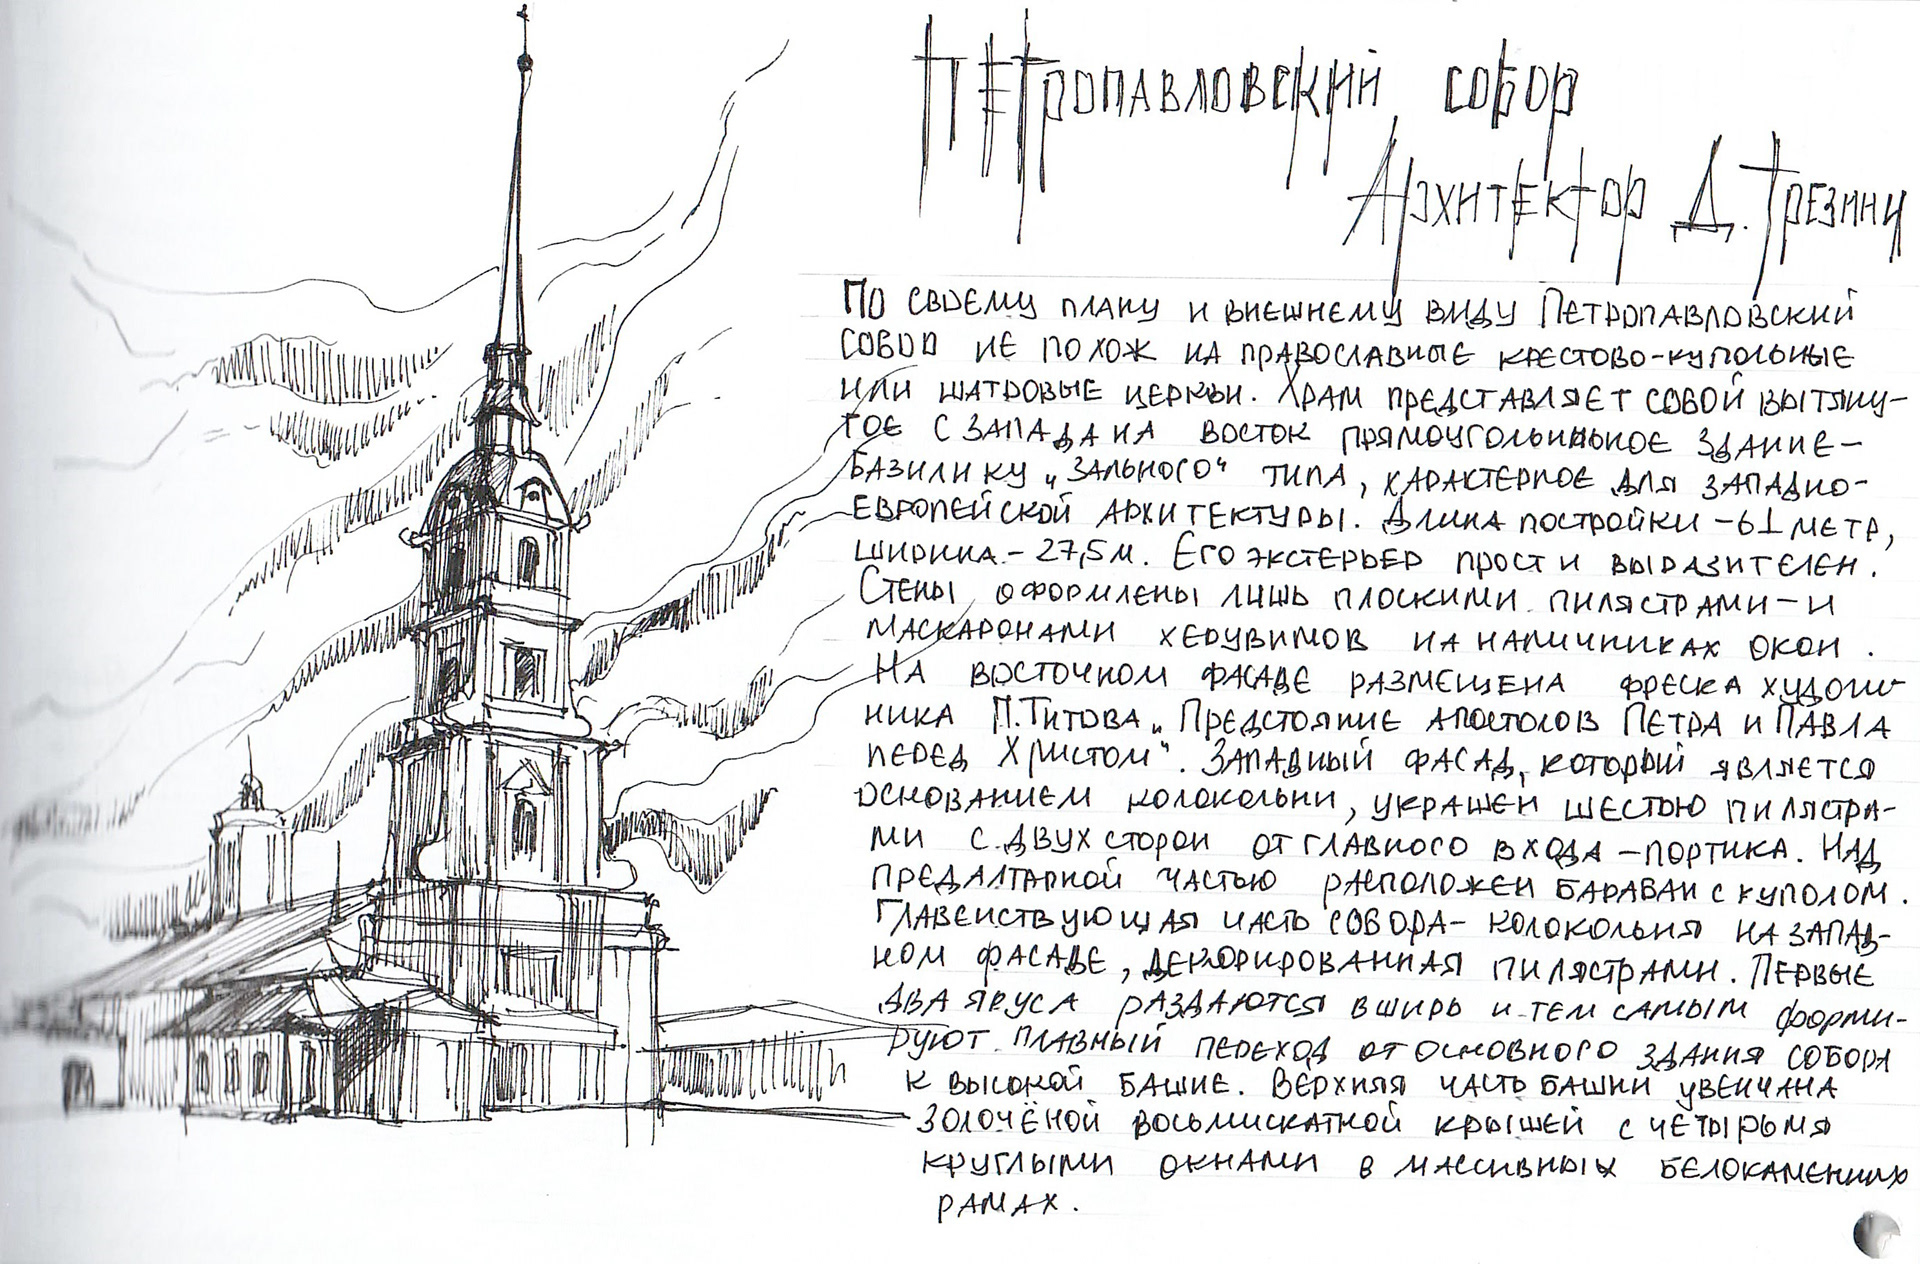 Петропавловский собор
Архитектор Д. Трезини
По своему плану и внешнему виду Петропавловский
собор не похож на православные крестово-купольные
или шатровые церкви. Храм представляет собой вытяну-
тое с запада на восток прямоугольное здание-
базилику „зального“ типа, характерное для западно-
европейской архитектуры. Длина постройки - 61 метр,
ширина - 27,5 м. Его экстерьер прост и выразителен.
Стены оформлены лишь плоскими пилястрами - и
маскаронами херувимов на наличниках окон.
На восточном фасаде размещена фреска худож-
ника П. Титова „Предстояние апостолов Петра и Павла
перед Христом“. Западный фасад, который является
основанием колокольни, украшен шестью пилястра-
ми с двух сторон от главного входа - портика. Над
предалтарной частью расположен барабан с куполом.
Главенствующая часть собора - колокольня на запад-
ном фасаде, декорированная пилястрами. Первые
два яруса раздаются вширь и тем самым форми-
руют плавный переход от основного здания собора
к высокой башне. Верхняя часть башни увенчана
золочёной восьмискатной крышей с четырьмя
круглыми окнами в массивных белокаменных
рамах.